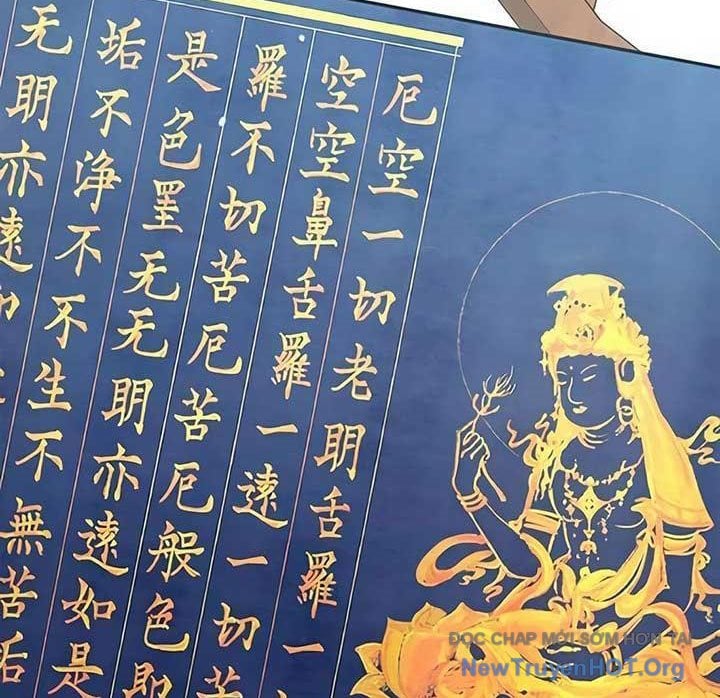 厄空一切老明舌羅
空空鼻舌羅一遠一切
羅不切苦厄苦厄般色即
是色罣无无明亦遠如是
垢不净不不生不無苦垢
无明亦遠即
ĐỌC CHAP MỚI SỚM HƠN TẠI
NewTruyenHOT.Org